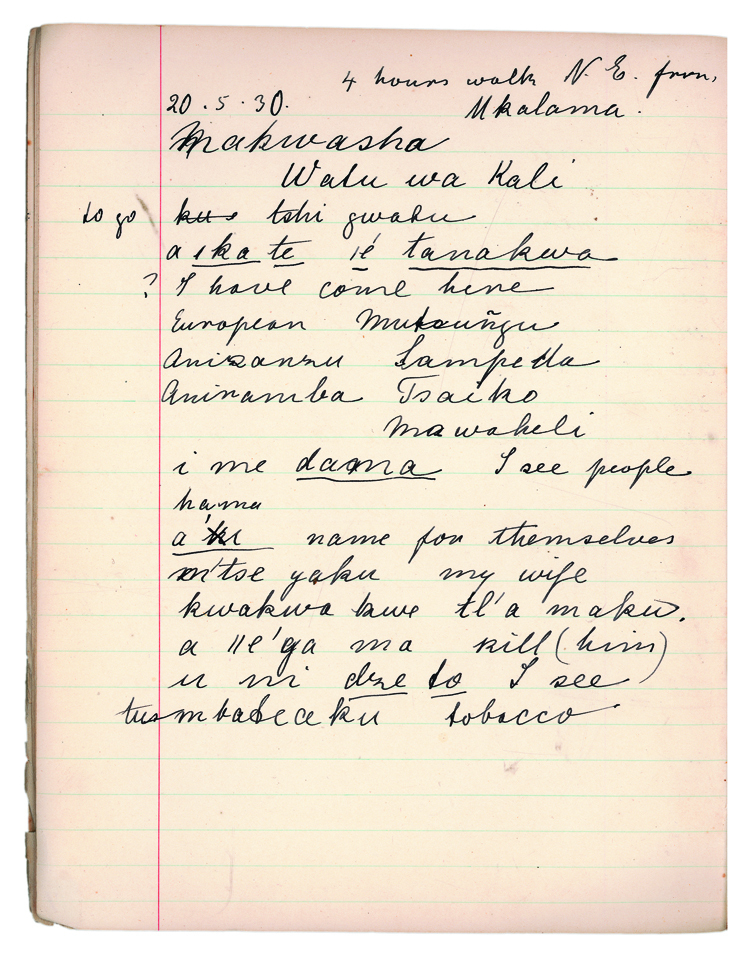 4 hours walk N. E. from
20. 5. 30. Mkalama.
Makwasha
Watu wa Kali
to go tshi gwatu
a ika te ié tanakwa
? I have come here
European
Anizanzu Lampeda
Aniramba Tsaiko
Mawakeli
i me dama I see people
hama
name for themselves
m'tse yaku my wife
kwakwa kwe tl'a maku.
a //é'ga ma kill (him)
u ni dze to I see
tobacco